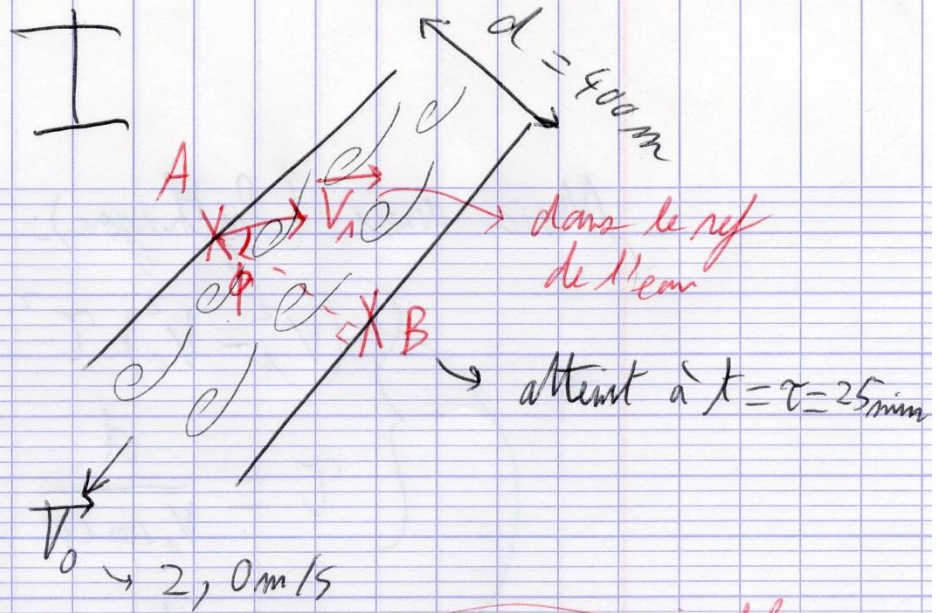 I
d = 400m
A
V₁
dans le ref
de l'eau
φ
B
atteint à t = τ = 25min
V₀
→ 2,0m/s